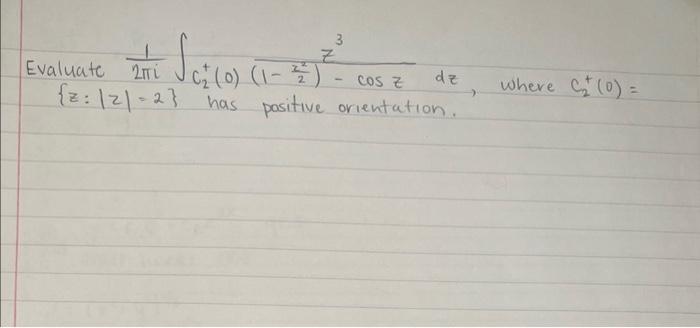 Evaluate \frac{1}{2πi} ∫_{C_2^+(0)} \frac{z^3}{(1 - \frac{z^2}{2}) - cos z} dz, where C_2^+(0) =
{z: |z| = 2} has positive orientation.